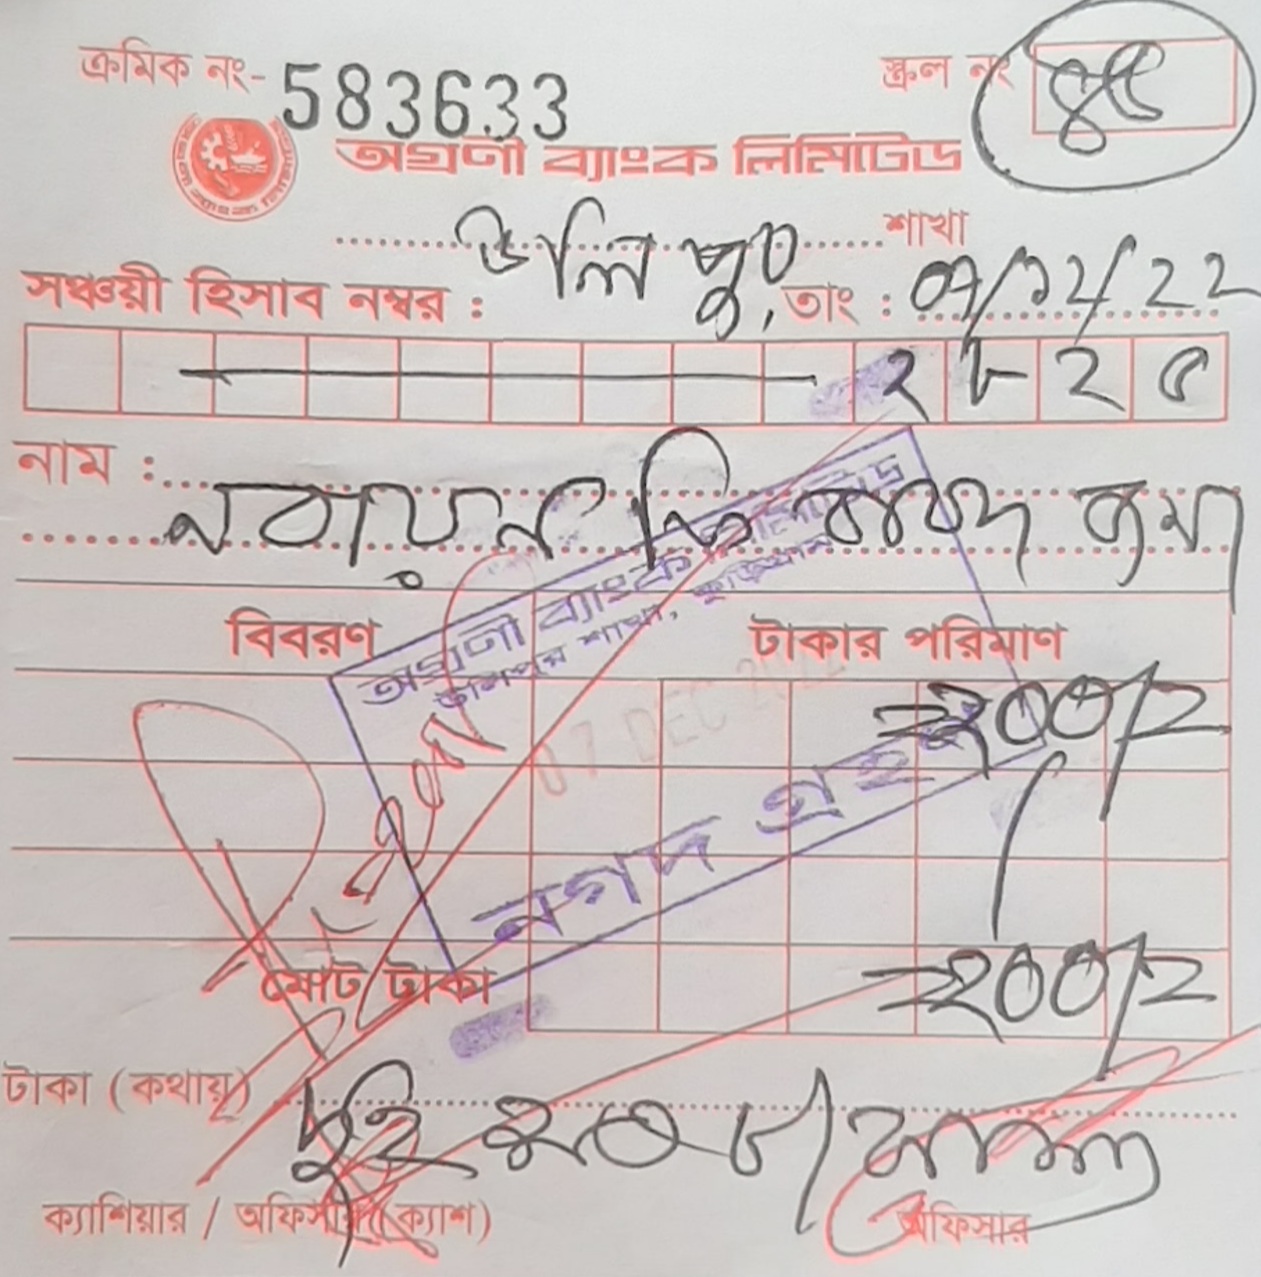 ক্রমিক নং- 583633
স্ক্রল নং ৪৫
অগ্রণী ব্যাংক লিমিটেড
উলিপুর শাখা
সঞ্চয়ী হিসাব নম্বর :
তাং : 07/12/22
২৮২৫
নাম :
নবায়ন ফি বাবদ জমা
বিবরণ
টাকার পরিমাণ
অগ্রণী ব্যাংক লিমিটেড
উলিপুর শাখা, কুড়িগ্রাম
07 DEC 2022
নগদ গ্রহণ
=২০০/=
মোট টাকা
=২০০/=
টাকা (কথায়)
দুই শত টাকা মাত্র
ক্যাশিয়ার / অফিসার (ক্যাশ)
অফিসার